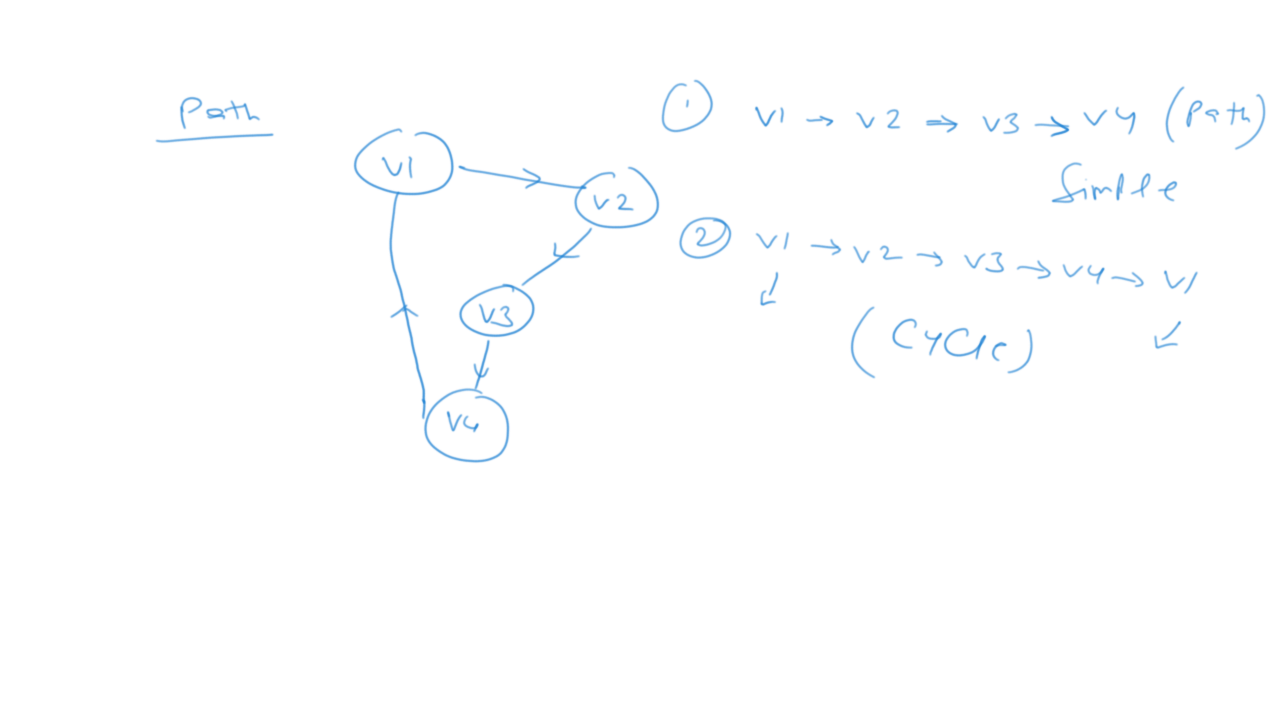 Path
V1
V2
V3
V4
1 V1 → V2 → V3 → V4 (Path)
Simple
2 V1 → V2 → V3 → V4 → V1
(CYCle)